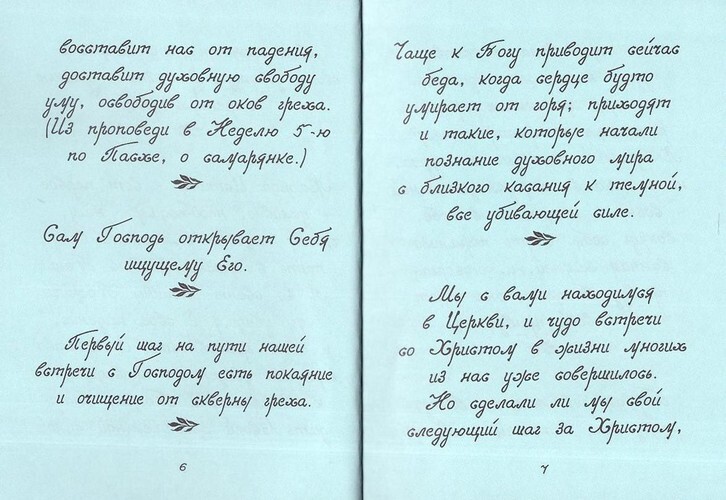 восставит нас от падения,
доставит духовную свободу
уму, освободив от оков греха.
(Из проповеди в Неделю 5-ю
по Пасхе, о самарянке.)
Сам Господь открывает Себя
ищущему Его.
Первый шаг на пути нашей
встречи с Господом есть покаяние
и очищение от скверны греха.
6
Чаще к Богу приводит сейчас
беда, когда сердце будто
умирает от горя; приходят
и такие, которые начали
познание духовного мира
с близкого касания к темной,
все убивающей силе.
Мы с вами находимся
в Церкви, и чудо встречи
со Христом в жизни многих
из нас уже совершилось.
Но сделали ли мы свой
следующий шаг за Христом,
7